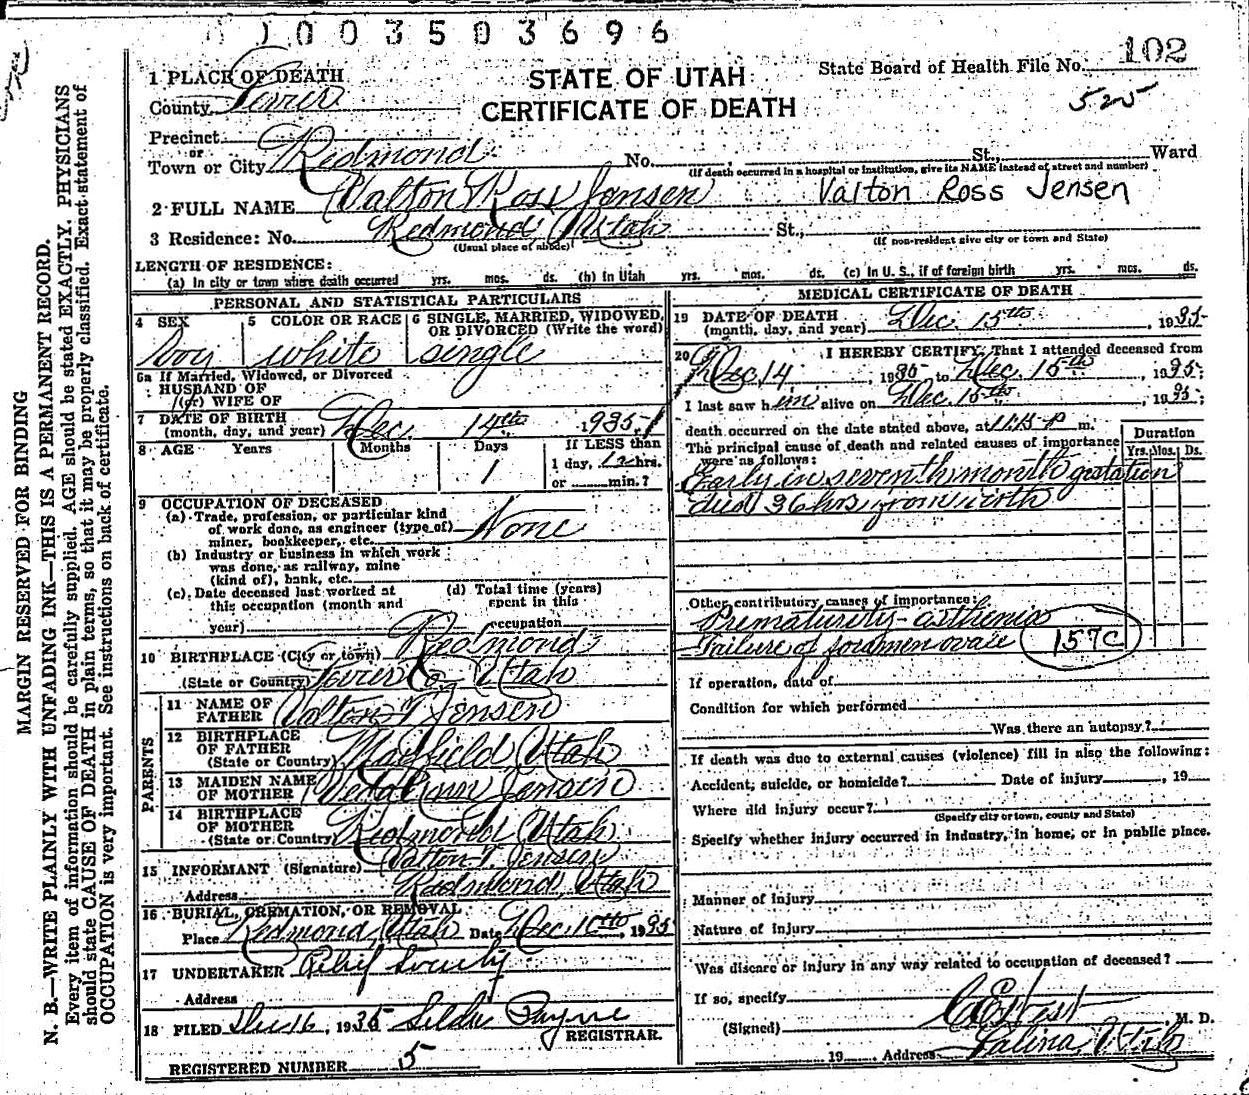 1003503696
STATE OF UTAH
CERTIFICATE OF DEATH
State Board of Health File No. 102
525
1 PLACE OF DEATH
County Sevier
Precinct
or
Town or City Redmond No. St., Ward
(If death occurred in a hospital or institution, give its NAME instead of street and number)
2 FULL NAME Valton Ross Jensen Valton Ross Jensen
3 Residence: No. Redmond Utah St.,
(Usual place of abode) (If non-resident give city or town and State)
LENGTH OF RESIDENCE:
(a) In city or town where death occurred yrs. mos. ds. (b) In Utah yrs. mos. ds. (c) In U. S., if of foreign birth yrs. mos. ds.
PERSONAL AND STATISTICAL PARTICULARS
4 SEX 5 COLOR OR RACE 6 SINGLE, MARRIED, WIDOWED, OR DIVORCED (Write the word)
Boy white single
6a If Married, Widowed, or Divorced
HUSBAND OF
(or) WIFE OF
7 DATE OF BIRTH
(month, day, and year) Dec. 14th 1935
8 AGE Years Months Days If LESS than
1 1 day, 12 hrs.
or min.?
9 OCCUPATION OF DECEASED
(a) Trade, profession, or particular kind
of work done, as engineer (type of)
miner, bookkeeper, etc. None
(b) Industry or business in which work
was done, as railway, mine
(kind of), bank, etc.
(c) Date deceased last worked at
this occupation (month and
year)
(d) Total time (years)
spent in this
occupation
10 BIRTHPLACE (City or town) Redmond
(State or Country) Sevier Co Utah
PARENTS
11 NAME OF
FATHER Valton T Jensen
12 BIRTHPLACE
OF FATHER
(State or Country) Mayfield Utah
13 MAIDEN NAME
OF MOTHER Jensen
14 BIRTHPLACE
OF MOTHER
(State or Country) Redmond Utah
15 INFORMANT (Signature) Valton T. Jensen
Address Redmond, Utah
16 BURIAL, CREMATION, OR REMOVAL
Place Redmond, Utah Date Dec. 1935
17 UNDERTAKER Relief Society
Address
18 FILED Dec 16, 1935 Selda Payne
REGISTRAR.
REGISTERED NUMBER 5
MEDICAL CERTIFICATE OF DEATH
19 DATE OF DEATH
(month, day, and year) Dec. 15th, 1935
20 I HEREBY CERTIFY, That I attended deceased from
Dec. 14, 1935 to Dec. 15th, 1935;
I last saw him alive on Dec. 15th, 1935;
death occurred on the date stated above, at 11:15 P m.
The principal cause of death and related causes of importance
were as follows:
Duration
Yrs. Mos. Ds.
Early in seventh month gestation
died 36 hrs from birth
Other contributory causes of importance:
Prematurity - asthenia
Failure of foramen ovale 157C
If operation, date of
Condition for which performed
Was there an autopsy?
If death was due to external causes (violence) fill in also the following:
Accident, suicide, or homicide? Date of injury , 19
Where did injury occur?
(Specify city or town, county and State)
Specify whether injury occurred in industry, in home, or in public place.
Manner of injury
Nature of injury
Was disease or injury in any way related to occupation of deceased?
If so, specify
(Signed) , M. D.
19 Address Salina Utah
MARGIN RESERVED FOR BINDING
N. B.—WRITE PLAINLY WITH UNFADING INK—THIS IS A PERMANENT RECORD.
Every item of information should be carefully supplied. AGE should be stated EXACTLY. PHYSICIANS
should state CAUSE OF DEATH in plain terms, so that it may be properly classified. Exact statement of
OCCUPATION is very important. See instructions on back of certificate.